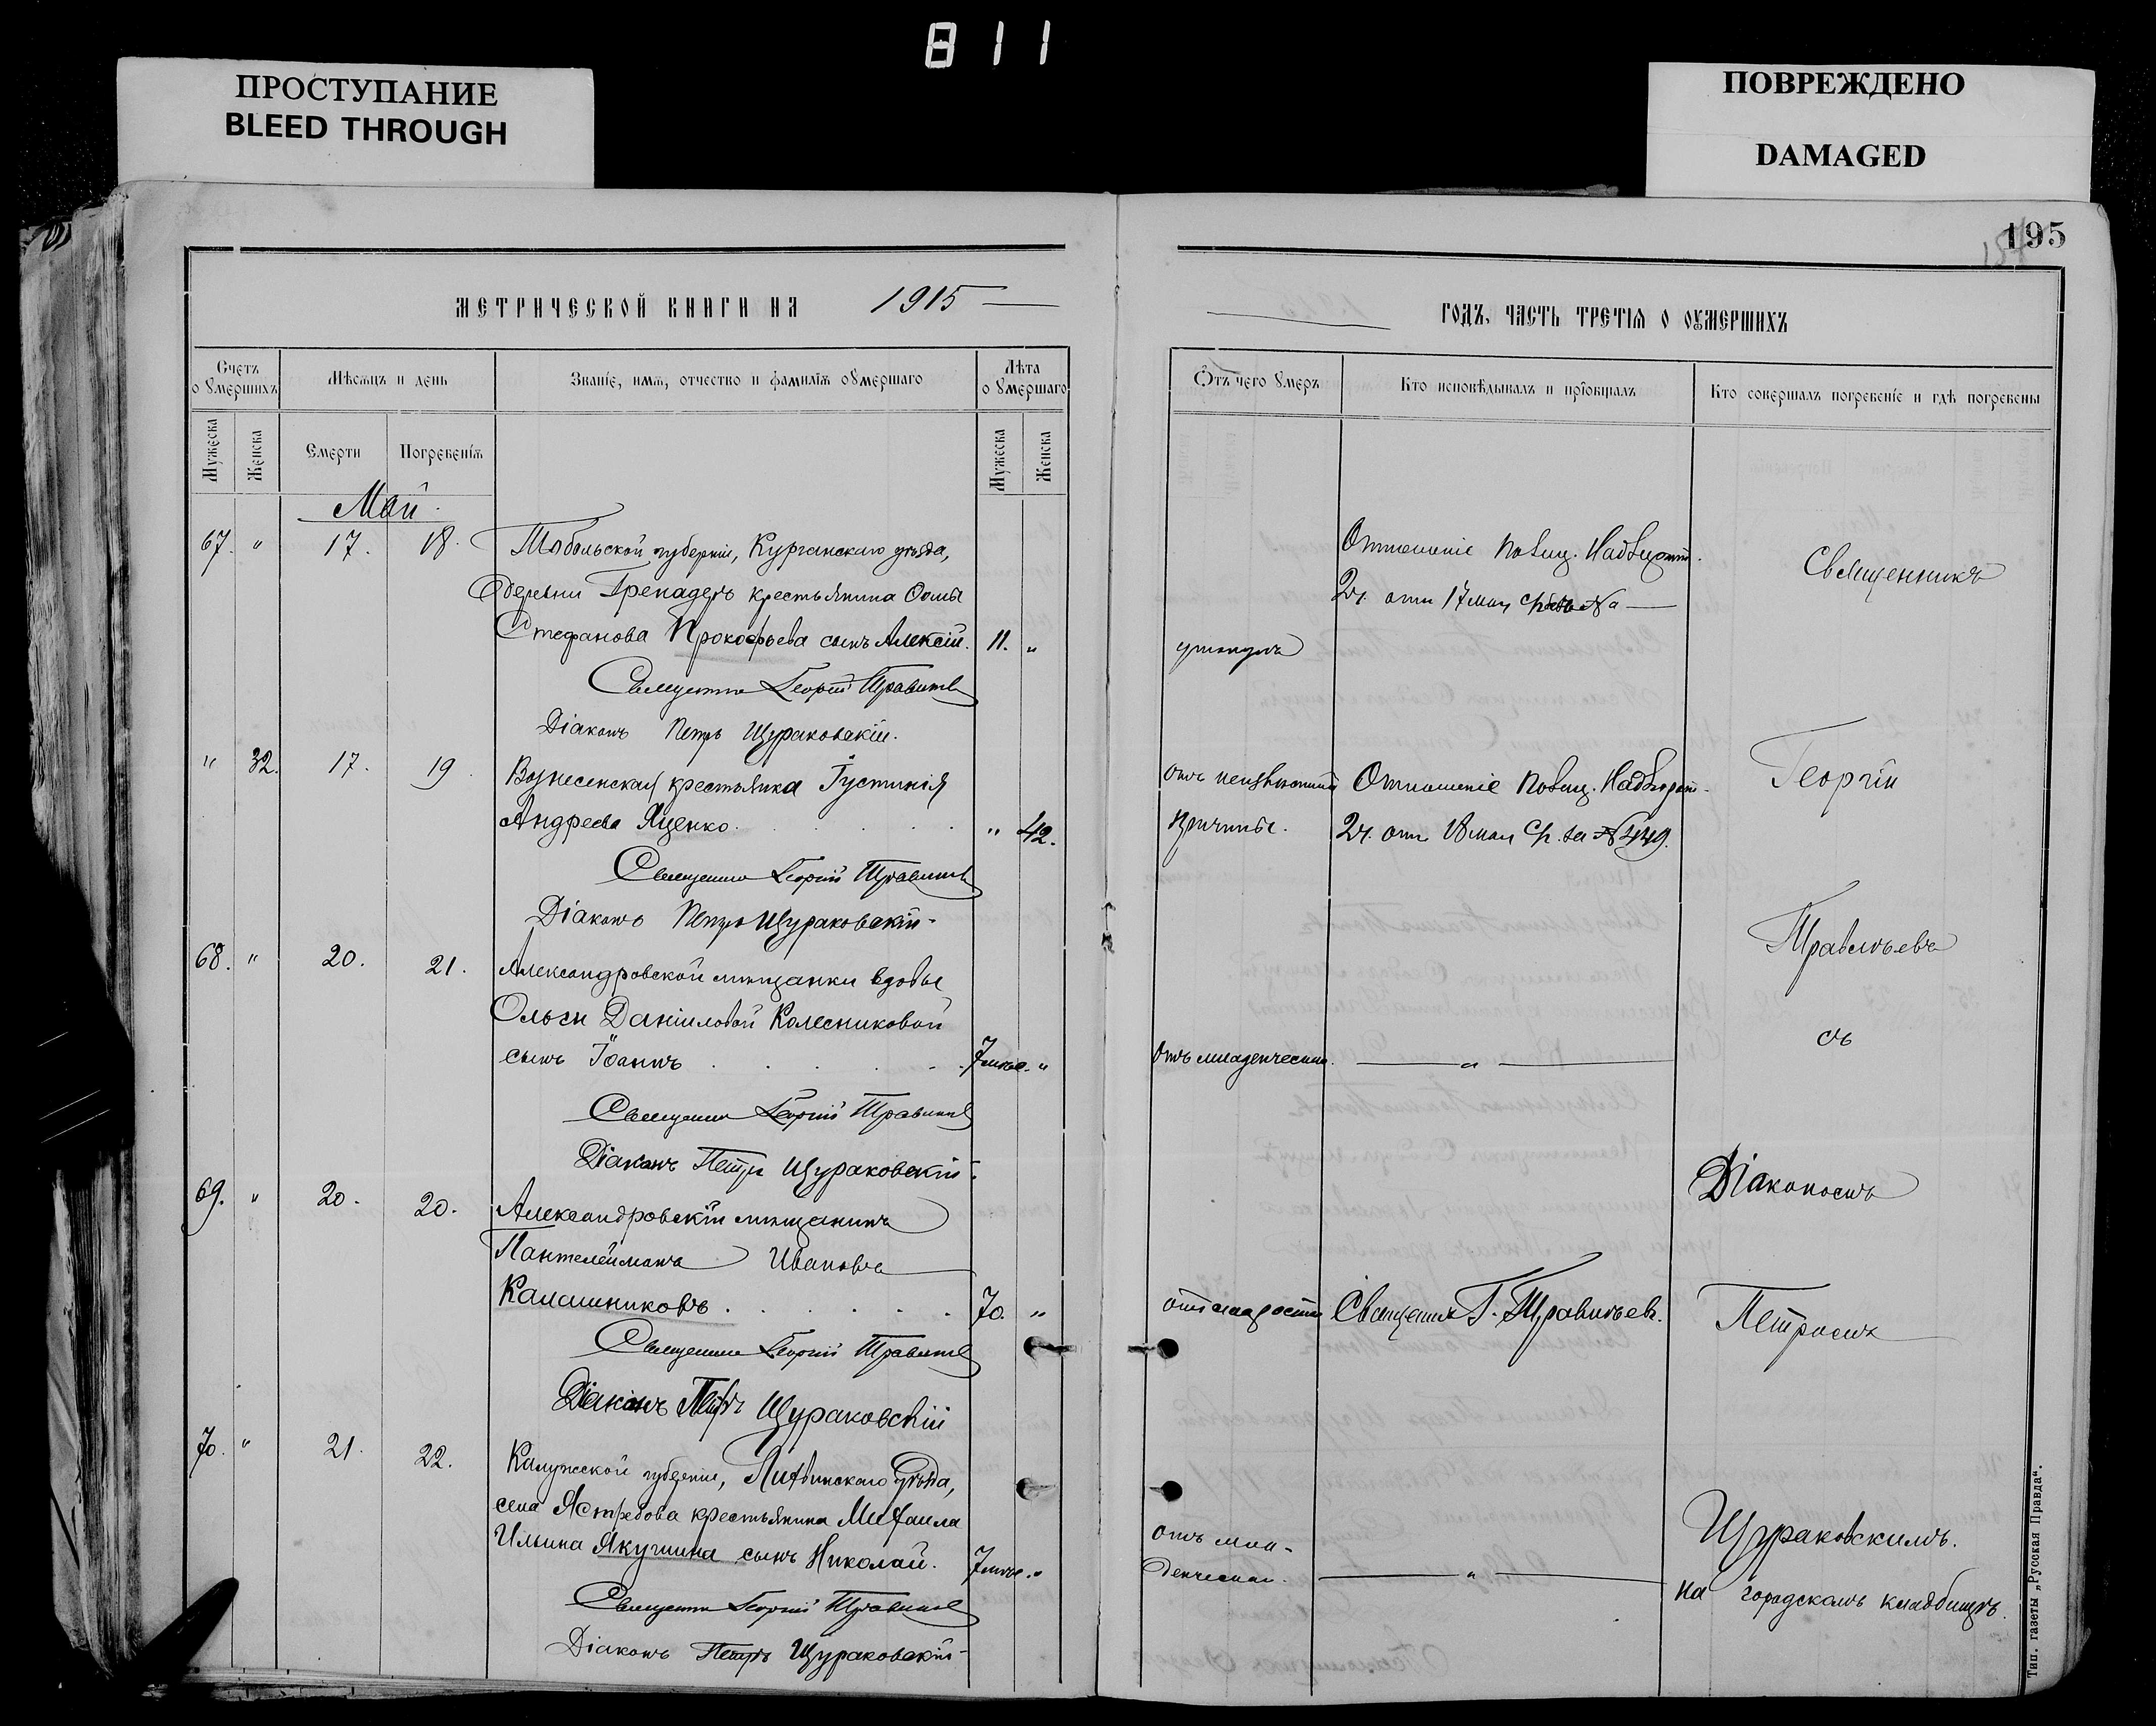 811
ПРОСТУПАНИЕ
BLEED THROUGH
ПОВРЕЖДЕНО
DAMAGED
195
МЕТРИЧЕСКОЙ КНИГИ НА 1915
Счетъ о умершихъ
Мѣсяцъ и день
Званіе, имя, отчество и фамилія умершаго
Лѣта умершаго
Мужеска
Женска
Смерти
Погребенія
Мужеска
Женска
Май
67. " 17. 18. Тобольской губерніи, Курганскаго уѣзда,
деревни Гренадеръ крестьянина Ѳомы
Стефанова Прокофьева сынъ Алексій. 11. "
Священникъ Георгій
Діаконъ Петръ Щураковскій.
" 32. 17. 19 Вознесенская крестьянка Іустинія
Андреева Яценко. " 42.
Священникъ Георгій
Діаконъ Петръ Щураковскій
68. " 20. 21. Александровской мѣщанки вдовы
Ольги Даніиловой Колесниковой
сынъ Іоаннъ 7 мѣс. "
Священникъ Георгій
Діаконъ Петръ Щураковскій
69. " 20. 20. Александровскій мѣщанинъ
Пантелеймонъ Ивановъ
Калашниковъ 70. "
Священникъ Георгій
Діаконъ Петръ Щураковскій
70. " 21. 22. Калужской губерніи, Лихвинскаго уѣзда,
села Ястребова крестьянина Михаила
Ильина Якушина сынъ Николай. 7 мѣс. "
Священникъ Георгій
Діаконъ Петръ Щураковскій
ГОДЪ, ЧАСТЬ ТРЕТІЯ О УМЕРШИХЪ
Отъ чего умеръ
Кто исповѣдывалъ и пріобщалъ
Кто совершалъ погребеніе и гдѣ погребены
Отношеніе Полиц.
2ч. отъ 17 мая
утонулъ
отъ неизвѣстной Отношеніе Полиц.
причины. 2ч. отъ 18 мая за № 449.
отъ младенческой "
отъ старости Священникъ Г. Травильевъ.
отъ мла-
денческой "
Священникъ
Георгій
Травильевъ
съ
Діакономъ
Петромъ
Щураковскимъ.
на городскомъ кладбищѣ.
Тип. газеты „Русская Правда“.